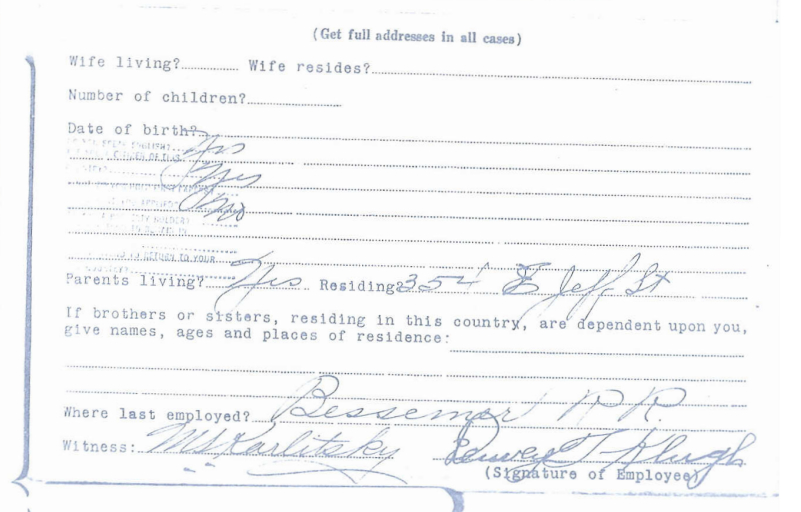 (Get full addresses in all cases)
Wife living? Wife resides?
Number of children?
Date of birth?
Yes
CITIZEN OF U.S.
Yes
No
TO RETURN TO YOUR
Parents living? Yes Residing? 354 E Jeff St
If brothers or sisters, residing in this country, are dependent upon you,
give names, ages and places of residence:
Where last employed? Bessemer R R.
Witness: Karlitsky Klugh
(Signature of Employee)